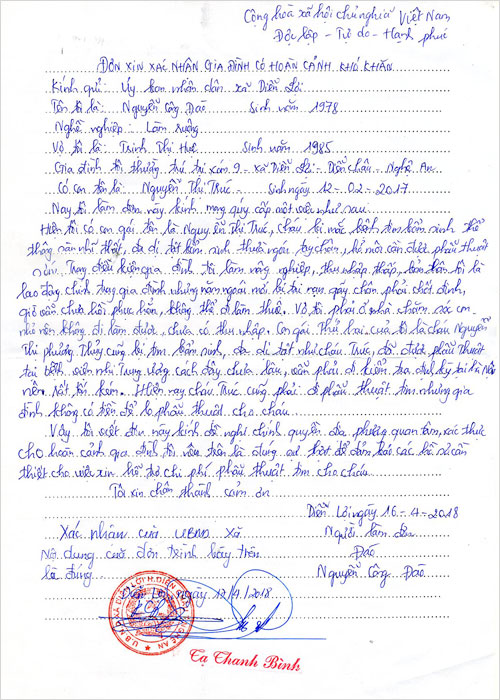 Cộng hoà xã hội chủ nghĩa Việt Nam
Độc lập - Tự do - Hạnh phúc
ĐƠN XIN XÁC NHẬN GIA ĐÌNH CÓ HOÀN CẢNH KHÓ KHĂN
Kính gửi: Uỷ ban nhân dân xã Diễn Lợi
Tên tôi là: Nguyễn Công Đào Sinh năm 1978
Nghề nghiệp: Làm ruộng
Vợ tôi là: Trịnh Thị Huệ Sinh năm 1985
Gia đình tôi thường trú tại xóm 9 - xã Diễn Lợi - Diễn Châu - Nghệ An
Có con tên là: Nguyễn Thị Trúc - Sinh ngày 12-02-2017
Nay tôi làm đơn này kính mong quý cấp một việc như sau:
Hiện tôi có con gái tên là Nguyễn Thị Trúc, cháu bị mắc bệnh tim bẩm sinh thể
thông sàn nhĩ thất, đa dị tật bẩm sinh thừa ngón tay chân, hở môi cần được phẫu thuật
sớm. Trong điều kiện gia đình tôi làm nông nghiệp, thu nhập thấp, bản thân tôi là
lao động chính trong gia đình nhưng năm ngoái mới bị tai nạn gãy chân phải chốt đinh,
giờ vẫn chưa hồi phục hẳn, không thể đi làm thuê. Vợ tôi phải ở nhà chăm sóc con
nhỏ nên không đi làm được, chưa có thu nhập. Con gái thứ hai của tôi là cháu Nguyễn
Thị Phương Thuỳ cũng bị tim bẩm sinh, đa dị tật như cháu Trúc, đã được phẫu thuật
tại bệnh viện nhi Trung ương cách đây chưa lâu, vẫn phải đi kiểm tra định kỳ tại Hà Nội
nên rất tốn kém. Hiện nay cháu Trúc cũng phải đi phẫu thuật tim nhưng gia
đình không có tiền để lo phẫu thuật cho cháu.
Vậy tôi viết đơn này kính đề nghị chính quyền địa phương quan tâm, xác thực
cho hoàn cảnh gia đình tôi nêu trên là đúng sự thật để đảm bảo các hồ sơ cần
thiết cho việc xin hỗ trợ chi phí phẫu thuật tim cho cháu.
Tôi xin chân thành cảm ơn
Diễn Lợi ngày 16-4-2018
Xác nhận của UBND xã Người làm đơn
Nội dung của đơn trình bày trên Đào
là đúng Nguyễn Công Đào
Diễn Lợi, ngày 17/4/2018
Tạ Thanh Bình